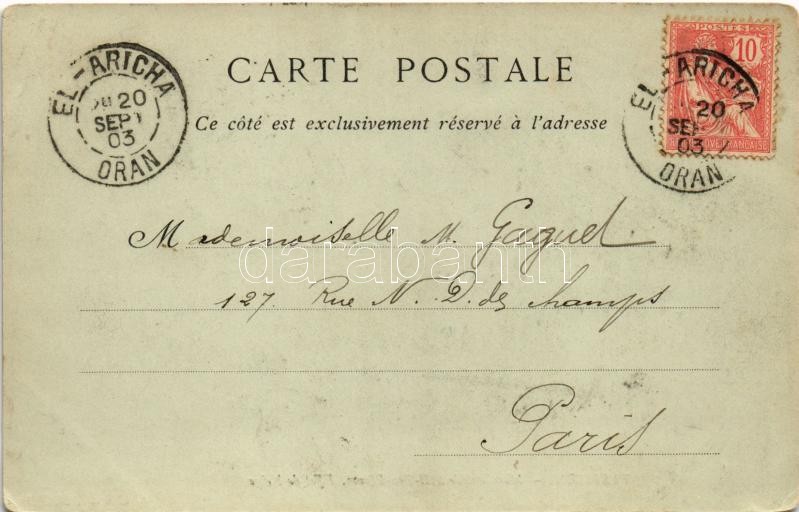 EL-ARICHA
20
SEPT
03
ORAN
CARTE POSTALE
Ce côté est exclusivement réservé à l'adresse
POSTES
10
EL-ARICHA
20
SEPT
03
ORAN
Mademoiselle M. Gaguel
127. Rue N. D. des champs
Paris
darabanth